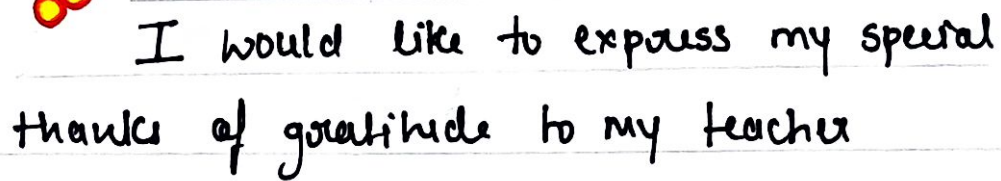 I would like to express my special
thanks of gratitude to my teacher